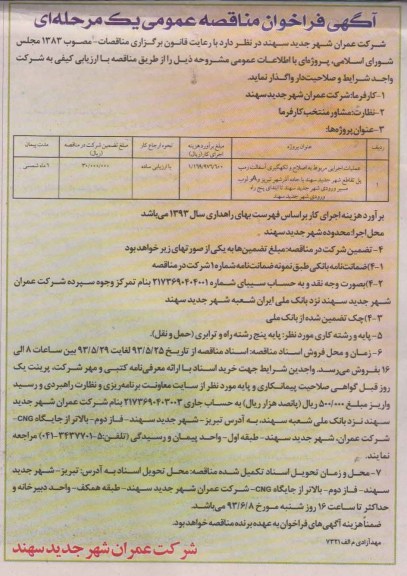 آگهی فراخوان مناقصه عمومی یک مرحله‌ای
شرکت عمران شهر جدید سهند در نظر دارد با رعایت قانون برگزاری مناقصات - مصوب ۱۳۸۳ مجلس
شورای اسلامی، پروژه‌ای با اطلاعات عمومی مشروحه ذیل را از طریق مناقصه با ارزیابی کیفی به شرکت
واجد شرایط و صلاحیت‌دار واگذار نماید.
۱- کارفرما: شرکت عمران شهر جدید سهند
۲- نظارت: مشاور منتخب کارفرما
۳- عنوان پروژه‌ها:
ردیف
عنوان پروژه
مبلغ برآورد هزینه اجرای کار (ریال)
نحوه ارجاع کار
مبلغ تضمین شرکت در مناقصه (ریال)
مدت پیمان
۱
عملیات اجرایی مربوط به اصلاح و لکه‌گیری آسفالت رمپ
پل تقاطع شهر جدید سهند با جاده آذرشهر تبریز و
مسیر ورودی شهر جدید سهند تا ابتدای پنج راه
ورودی شهر جدید سهند
با ارزیابی ساده
۶ ماه شمسی
برآورد هزینه اجرای کار بر اساس فهرست بهای راهداری سال ۱۳۹۳ می‌باشد
محل اجرا: محدوده شهر جدید سهند
۴- تضمین شرکت در مناقصه: مبلغ تضمین‌ها به یکی از صورتهای زیر خواهد بود
۴-۱) ضمانت‌نامه بانکی طبق نمونه ضمانت‌نامه شماره ۱ شرکت در مناقصه
۴-۲) بصورت وجه نقد و به حساب سیبای شماره ۲۱۷۳۶۹۰۴۰۴۰۰۱ بنام تمرکز وجوه سپرده شرکت عمران
شهر جدید سهند نزد بانک ملی ایران شعبه شهر جدید سهند
۴-۳) چک تضمین شده از بانک ملی
۵- پایه و رشته کاری مورد نظر: پایه پنج رشته راه و ترابری (حمل و نقل).
۶- زمان و محل فروش اسناد مناقصه: اسناد مناقصه از تاریخ ۹۳/۵/۲۵ لغایت ۹۳/۵/۲۹ بین ساعات ۸ الی
۱۶ بفروش می‌رسد. واجدین شرایط جهت خرید اسناد با ارائه معرفی‌نامه کتبی و مهر شرکت، پرینت یک
روز قبل گواهی صلاحیت پیمانکاری و پایه مورد نظر از سایت معاونت برنامه‌ریزی و نظارت راهبردی و رسید
واریز مبلغ ۵۰۰/۰۰۰ ریال (پانصد هزار ریال) به حساب جاری ۲۱۷۳۶۹۰۴۰۳۰۰۳ بنام شرکت عمران شهر جدید
سهند نزد بانک ملی شعبه سهند، به آدرس تبریز - شهر جدید سهند - فاز دوم - بالاتر از جایگاه CNG -
شرکت عمران، شهر جدید سهند - طبقه اول - واحد پیمان و رسیدگی (تلفن: ۵-۳۴۴۳۷۷۰۱-۰۴۱) مراجعه
نمایند.
۷- محل و زمان تحویل اسناد تکمیل شده مناقصه: محل تحویل اسناد به آدرس: تبریز - شهر جدید
سهند - فاز دوم - بالاتر از جایگاه CNG - شرکت عمران شهر جدید سهند - طبقه همکف - واحد دبیرخانه و
حداکثر تا ساعت ۱۶ روز شنبه مورخ ۹۳/۶/۸ می‌باشد.
ضمناً هزینه آگهی‌های فراخوان به عهده برنده مناقصه خواهد بود.
مهد آزادی م الف ۷۲۲۱
شرکت عمران شهر جدید سهند